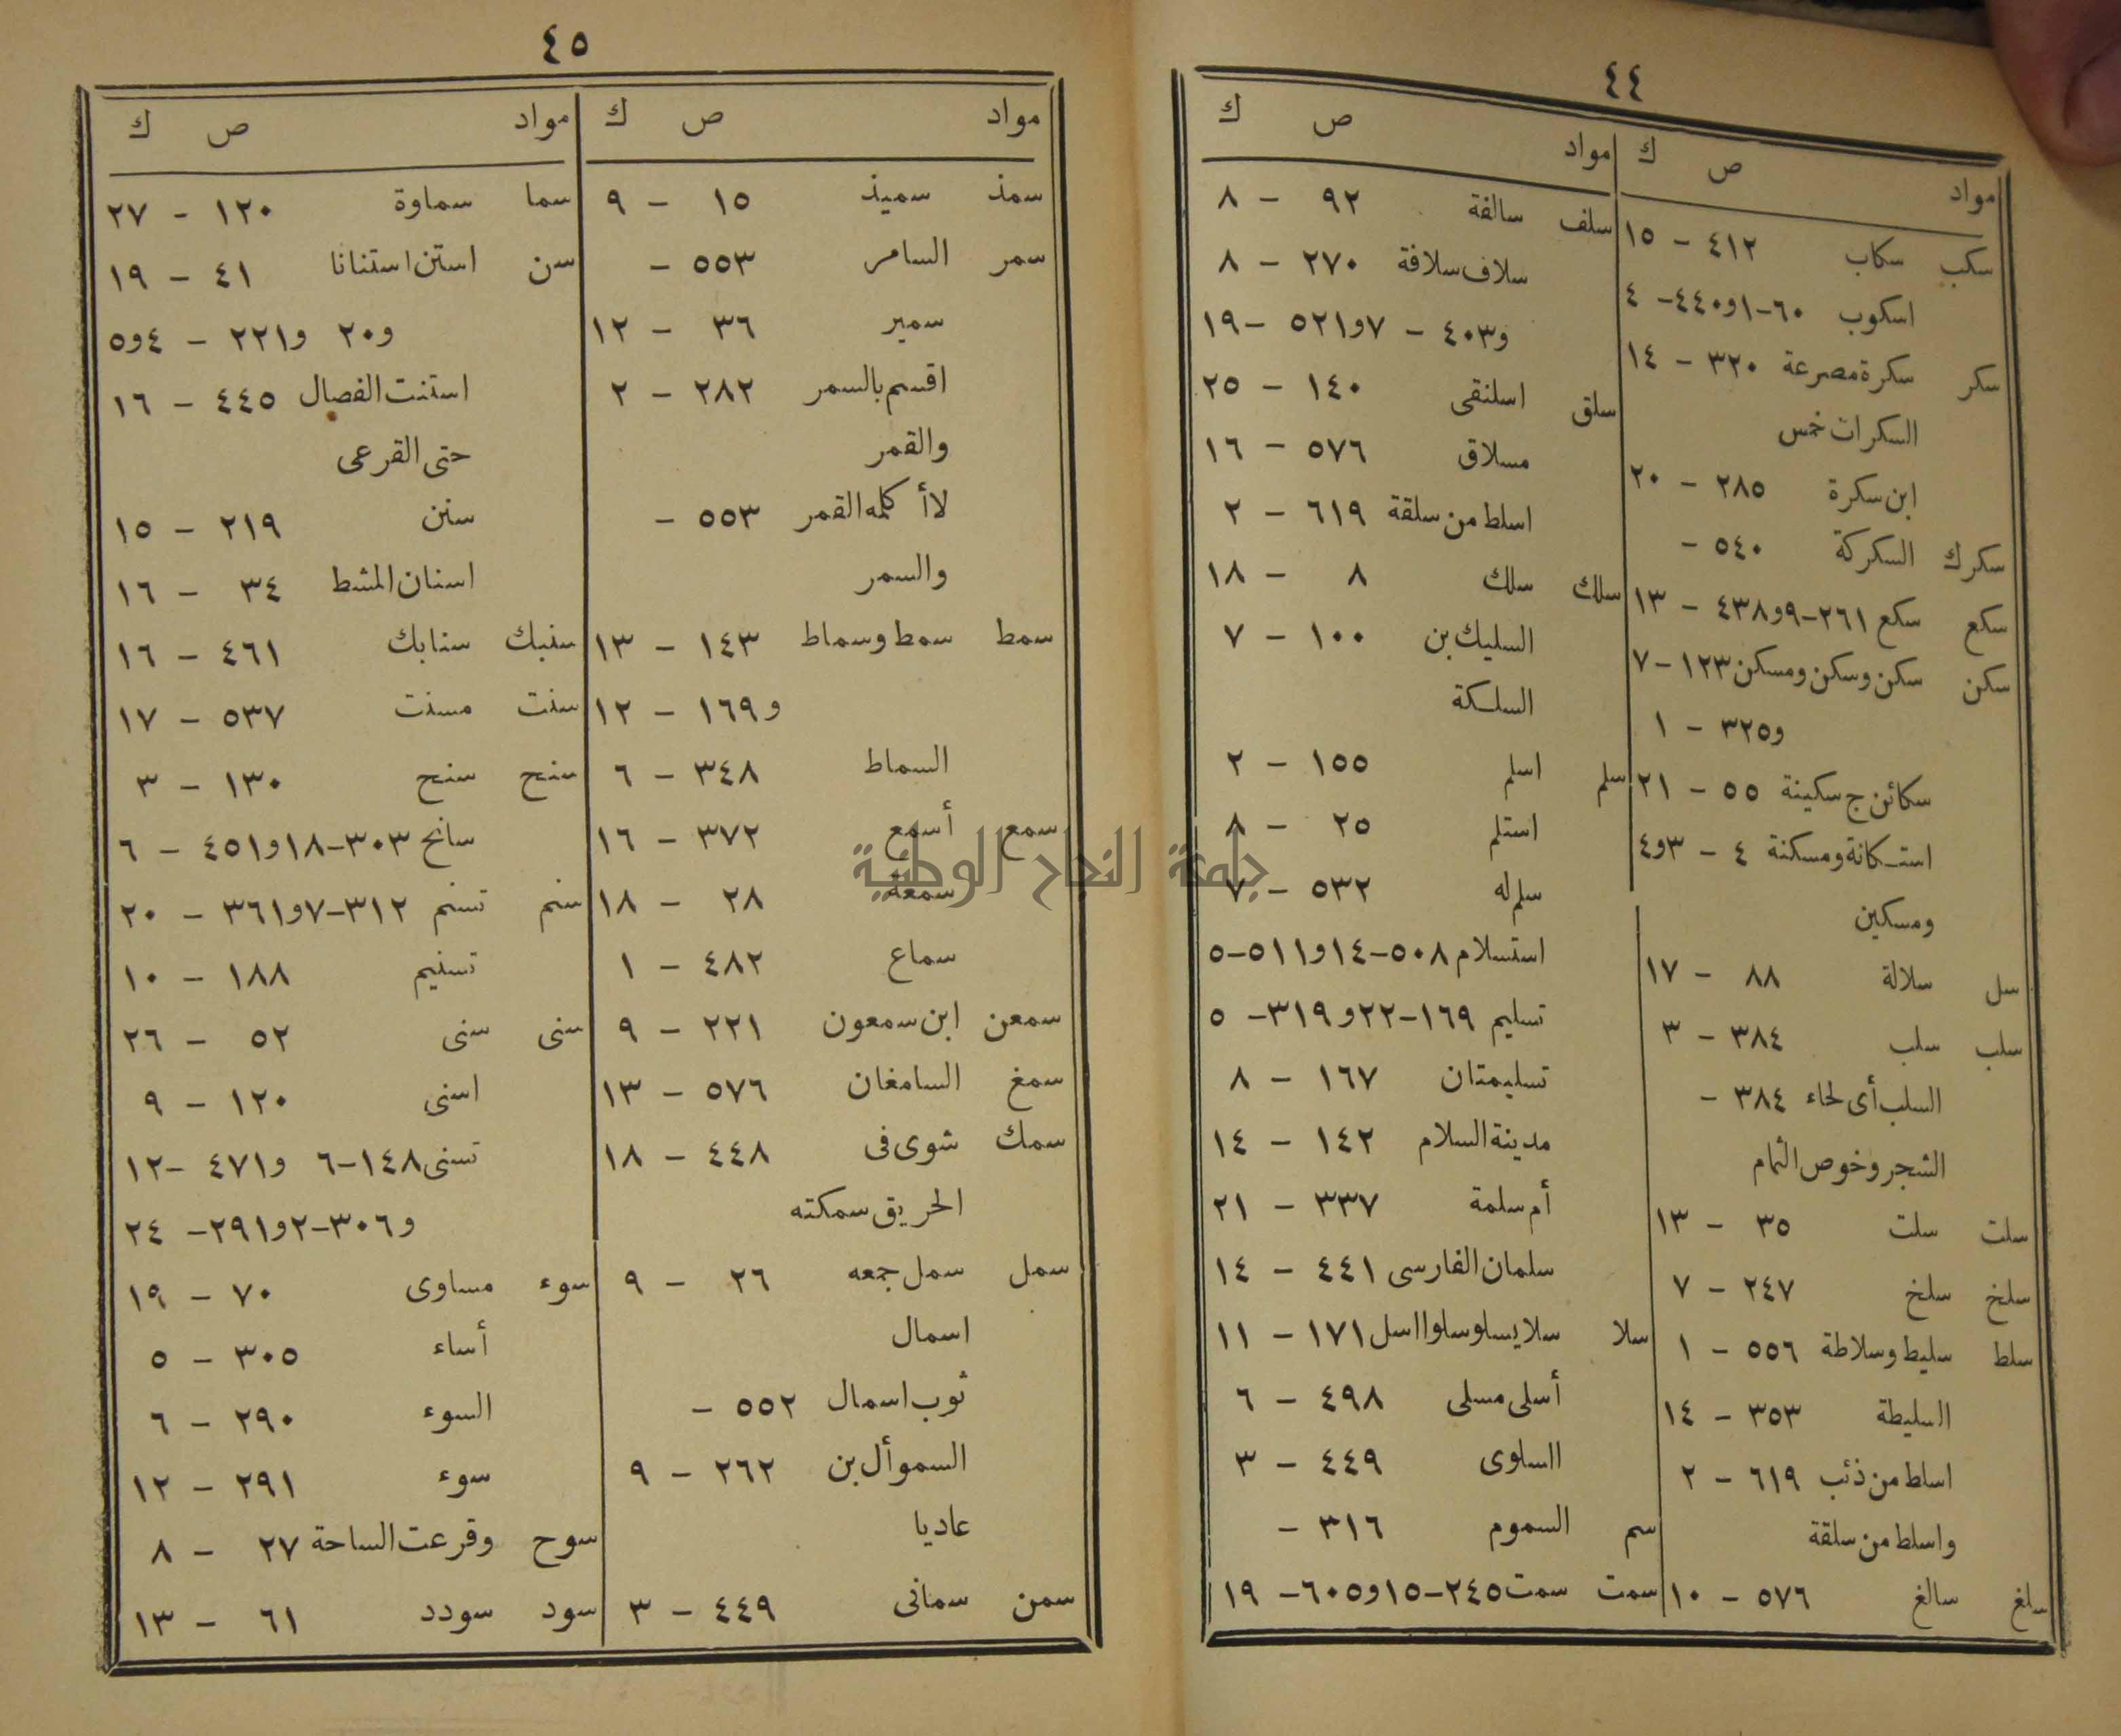 ٤٤
مواد ص ك
سكب سكاب ٤١٢ – ١٥
اسكوب ٦٠–١و٤٤٠– ٤
سكر سكرة مصرعة ٣٢٠ – ١٤
السكرات خمس
ابن سكرة ٢٨٥ – ٢٠
سكرك السكركة ٥٤٠ –
سكع سكع ٢٦١–٩و٤٣٨ – ١٣
سكن سكن وسكن ومسكن ١٢٣–٧
و٣٢٥ – ١
سكائن ج سكينة ٥٥ – ٢١
استـكانة ومسكنة ٤ – ٣و٤
ومسكين
سل سلالة ٨٨ – ١٧
سلب سلب ٣٨٤ – ٣
السلب أى لحاء ٣٨٤ –
الشجر وخوص الثمام
سلت سلت ٣٥ – ١٣
سلخ سلخ ٢٤٧ – ٧
سلط سليط وسلاطة ٥٥٦ – ١
السليطة ٣٥٣ – ١٤
اسلط من ذئب ٦١٩ – ٢
واسلط من سلقة
سلغ سالغ ٥٧٦ – ١٠
مواد ص ك
سلف سالفة ٩٢ – ٨
سلاف سلافة ٢٧٠ – ٨
و٤٠٣ – ٧و٥٢١ –١٩
سلق اسلنقى ١٤٠ – ٢٥
مسلاق ٥٧٦ – ١٦
اسلط من سلقة ٦١٩ – ٢
سلك سلك ٨ – ١٨
السليك بن ١٠٠ – ٧
السلسكة
سلم اسلم ١٥٥ – ٢
استلم ٢٥ – ٨
سلم له ٥٣٢ – ٧
استسلام ٥٠٨–١٤و٥١١–٥
تسليم ١٦٩–٢٢و٣١٩– ٥
تسليمتان ١٦٧ – ٨
مدينة السلام ١٤٢ – ١٤
أم سلمة ٣٣٧ – ٢١
سلمان الفارسى ٤٤١ – ١٤
سلا سلا يسلو سلوا اسل ١٧١ – ١١
أسلى مسلى ٤٩٨ – ٦
السلوى ٤٤٩ – ٣
سم السموم ٣١٦ –
سمت سمت ٢٤٥–١٥و٦٠٥– ١٩
٤٥
مواد ص ك
سمذ سميذ ١٥ – ٩
سمر السامر ٥٥٣ –
سمير ٣٦ – ١٢
اقسم بالسمر ٢٨٢ – ٢
والقمر
لا أكلمه القمر ٥٥٣ –
والسمر
سمط سمط وسماط ١٤٣ – ١٣
و١٦٩ – ١٢
السماط ٣٤٨ – ٦
سمع أسمع ٣٧٢ – ١٦
سمعة ٢٨ – ١٨
سماع ٤٨٢ – ١
سمعن ابن سمعون ٢٢١ – ٩
سمغ السامغان ٥٧٦ – ١٣
سمك شوى فى ٤٤٨ – ١٨
الحريق سمكته
سمل سمل جمعه ٢٦ – ٩
اسمال
ثوب اسمال ٥٥٢ –
السموأل بن ٢٦٢ – ٩
عاديا
سمن سمانى ٤٤٩ – ٣
مواد ص ك
سما سماوة ١٢٠ – ٢٧
سن استن استنانا ٤١ – ١٩
و٢٠ و٢٢١ – ٤و٥
استنت الفصال ٤٤٥ – ١٦
حتى القرعى
سنن ٢١٩ – ١٥
اسنان المشط ٣٤ – ١٦
سنبك سنابك ٤٦١ – ١٦
سنت مسنت ٥٣٧ – ١٧
سنح سنح ١٣٠ – ٣
سانح ٣٠٣–١٨و٤٥١ – ٦
سنم تسنم ٣١٢–٧و٣٦١ – ٢٠
تسنيم ١٨٨ – ١٠
سنى سنى ٥٢ – ٢٦
اسنى ١٢٠ – ٩
تسنى ١٤٨–٦ و٤٧١ –١٢
و٣٠٦–٢و٢٩١– ٢٤
سوء مساوى ٧٠ – ١٩
أساء ٣٠٥ – ٥
السوء ٢٩٠ – ٦
سوء ٢٩١ – ١٢
سوح وقرعت الساحة ٢٧ – ٨
سود سودد ٦١ – ١٣
جامعة النجاح الوطنية